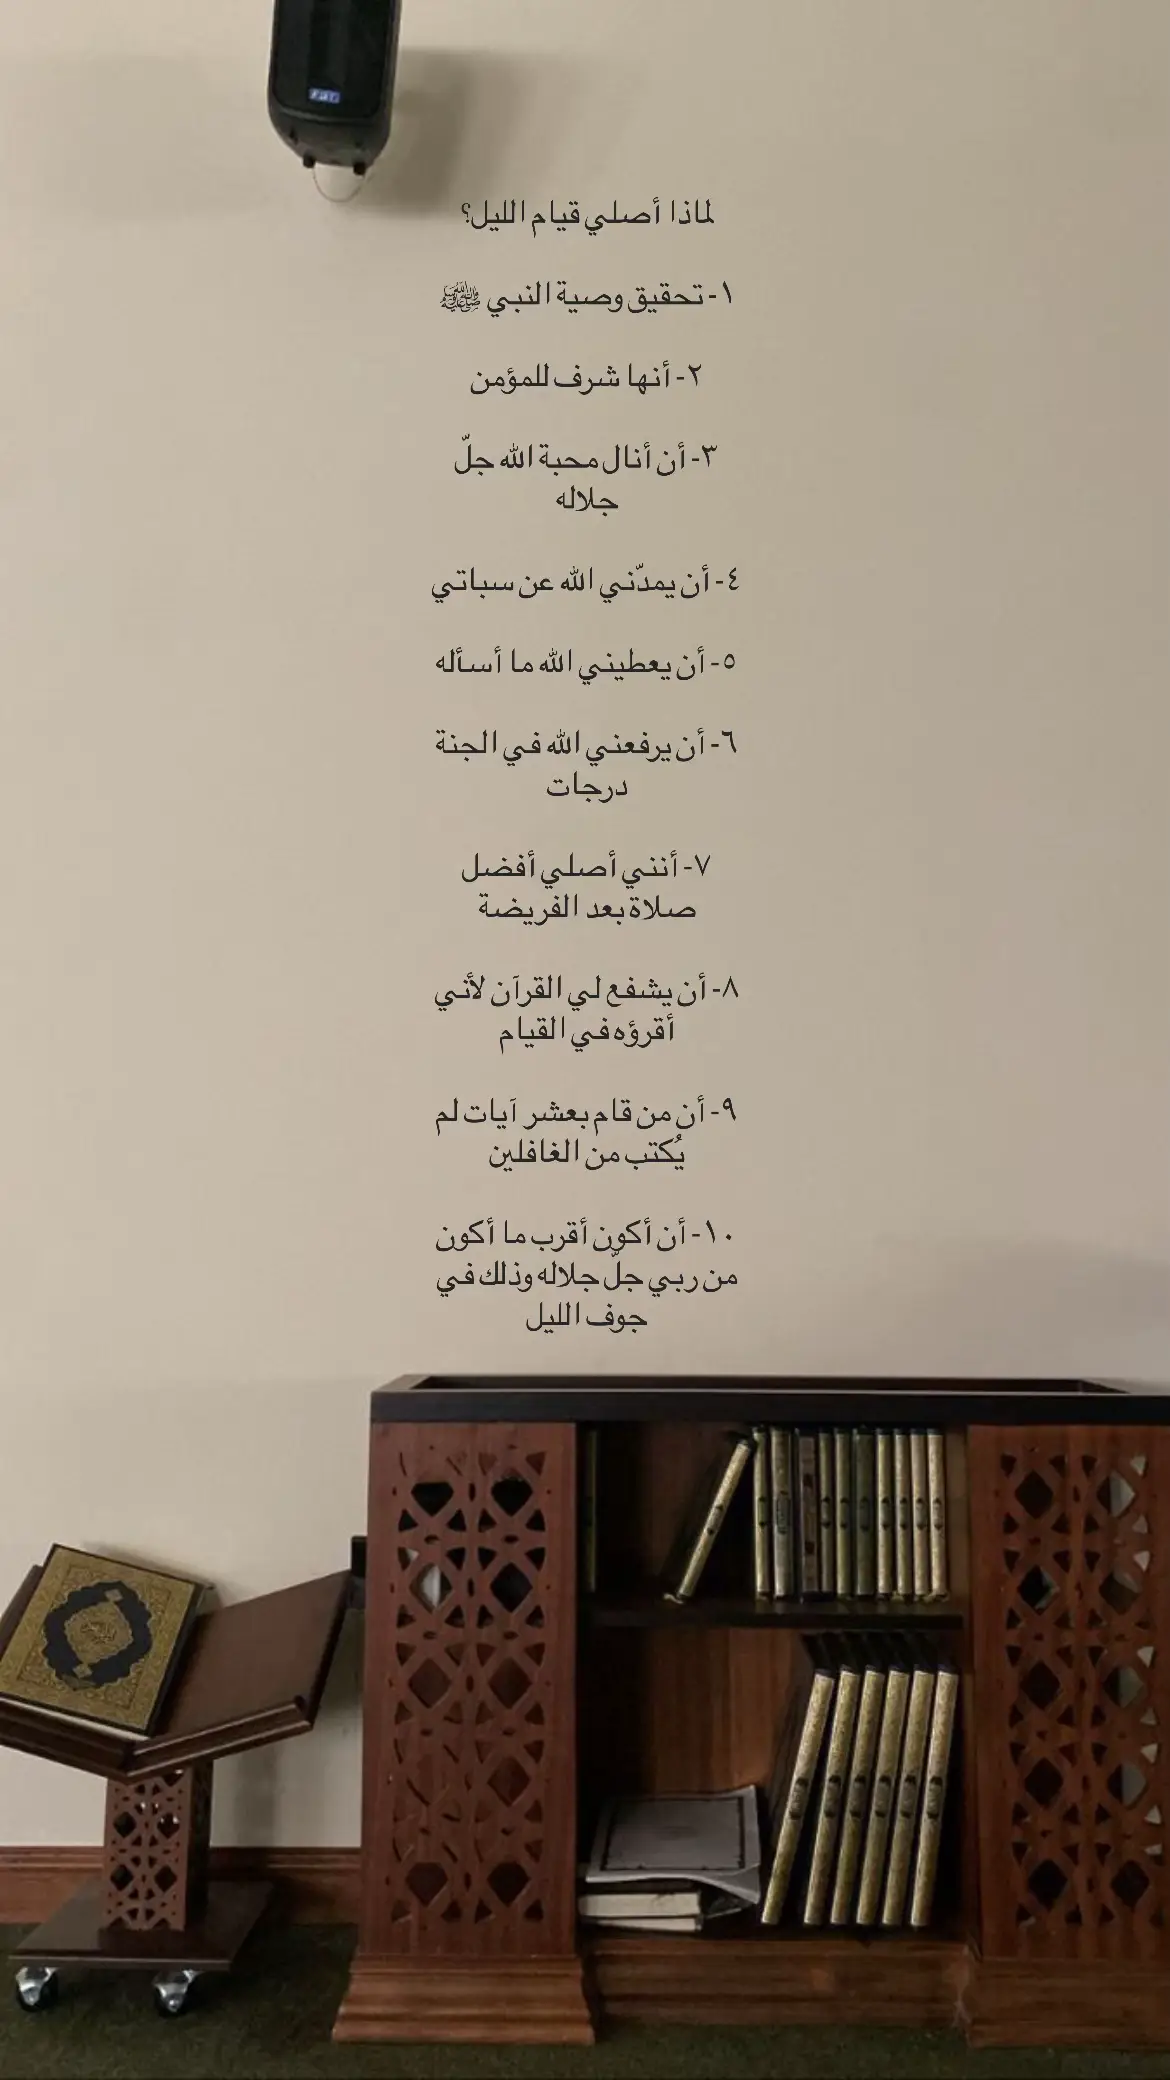 لماذا أصلي قيام الليل؟
١- تحقيق وصية النبي ﷺ
٢- أنها شرف للمؤمن
٣- أن أنال محبة الله جلّ
جلاله
٤- أن يمدّني الله عن سباتي
٥- أن يعطيني الله ما أسأله
٦- أن يرفعني الله في الجنة
درجات
٧- أنني أصلي أفضل
صلاة بعد الفريضة
٨- أن يشفع لي القرآن لأني
أقرؤه في القيام
٩- أن من قام بعشر آيات لم
يُكتب من الغافلين
١٠- أن أكون أقرب ما أكون
من ربي جلّ جلاله وذلك في
جوف الليل